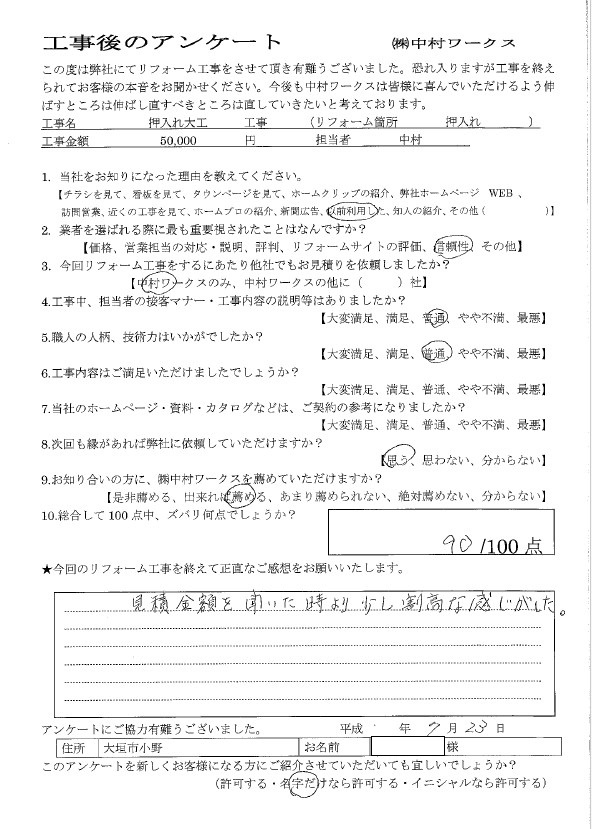 工事後のアンケート　㈱中村ワークス
この度は弊社にてリフォーム工事をさせて頂き有難うございました。恐れ入りますが工事を終え
られてお客様の本音をお聞かせください。今後も中村ワークスは皆様に喜んでいただけるよう伸
ばすところは伸ばし直すべきところは直していきたいと考えております。
工事名　押入れ大工　工事　（リフォーム箇所　押入れ　）
工事金額　50,000　円　担当者　中村
1．当社をお知りになった理由を教えてください。
【チラシを見て、看板を見て、タウンページを見て、ホームクリップの紹介、弊社ホームページ　WEB 、
訪問営業、近くの工事を見て、ホームプロの紹介、新聞広告、以前利用した、知人の紹介、その他（　　）】
2．業者を選ばれる際に最も重要視されたことはなんですか？
【価格、営業担当の対応・説明、評判、リフォームサイトの評価、信頼性、その他】
3．今回リフォーム工事をするにあたり他社でもお見積りを依頼しましたか？
【中村ワークスのみ、中村ワークスの他に（　　）社】
4.工事中、担当者の接客マナー・工事内容の説明等はありましたか？
【大変満足、満足、普通、やや不満、最悪】
5.職人の人柄、技術力はいかがでしたか？
【大変満足、満足、普通、やや不満、最悪】
6.工事内容はご満足いただけましたでしょうか？
【大変満足、満足、普通、やや不満、最悪】
7.当社のホームページ・資料・カタログなどは、ご契約の参考になりましたか？
【大変満足、満足、普通、やや不満、最悪】
8.次回も縁があれば弊社に依頼していただけますか？
【思う、思わない、分からない】
9.お知り合いの方に、㈱中村ワークスを薦めていただけますか？
【是非薦める、出来れば薦める、あまり薦められない、絶対薦めない、分からない】
10.総合して100点中、ズバリ何点でしょうか？
90 /100 点
★今回のリフォーム工事を終えて正直なご感想をお願いいたします。
見積金額を聞いた時より少し割高な感じがした。
アンケートにご協力有難うございました。　平成　年 7 月 23 日
住所　大垣市小野　お名前　様
このアンケートを新しくお客様になる方にご紹介させていただいても宜しいでしょうか？
（許可する・名字だけなら許可する・イニシャルなら許可する）